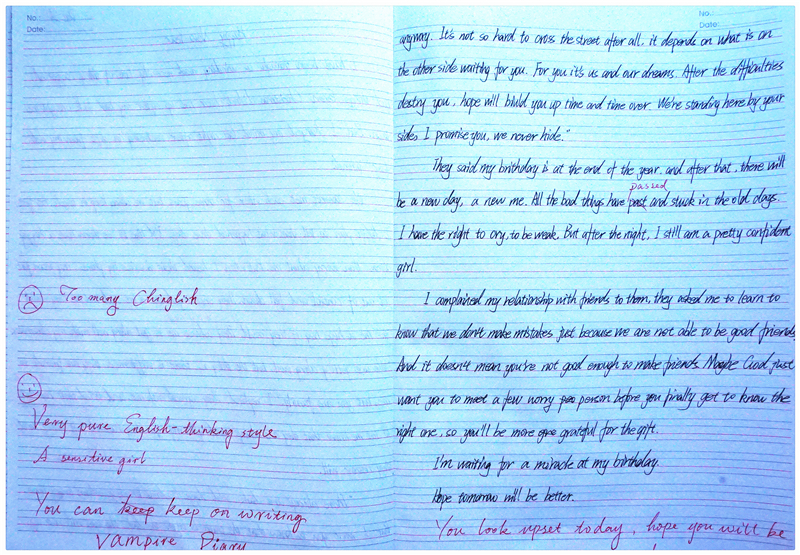 No.
Date:
Too many Chinglish
Very pure English-thinking style
A sensitive girl
You can keep keep on writing
Vampire Diary
No.
Date:
anyway. It's not so hard to cross the street after all, it depends on what is on
the other side waiting for you. For you it's us and our dreams. After the difficulties
destry you, hope will biuld you up time and time over. We're standing here by your
side, I promise you, we never hide."
They said my birthday is at the end of the year, and after that, there will
passed
be a new day, a new me. All the bad things have past and stuck in the old days.
I have the right to cry, to be weak. But after the night, I still am a pretty confident
girl.
I complained my relationship with friends to them, they asked me to learn to
know that we don't make mistakes just because we are not able to be good friends
And it doesn't mean you're not good enough to make friends. Maybe God just
want you to meet a few worry person before you finally get to know the
right one, so you'll be more grateful for the gift.
I'm waiting for a miracle at my birthday.
Hope tomorrow will be better.
You look upset today, hope you will be